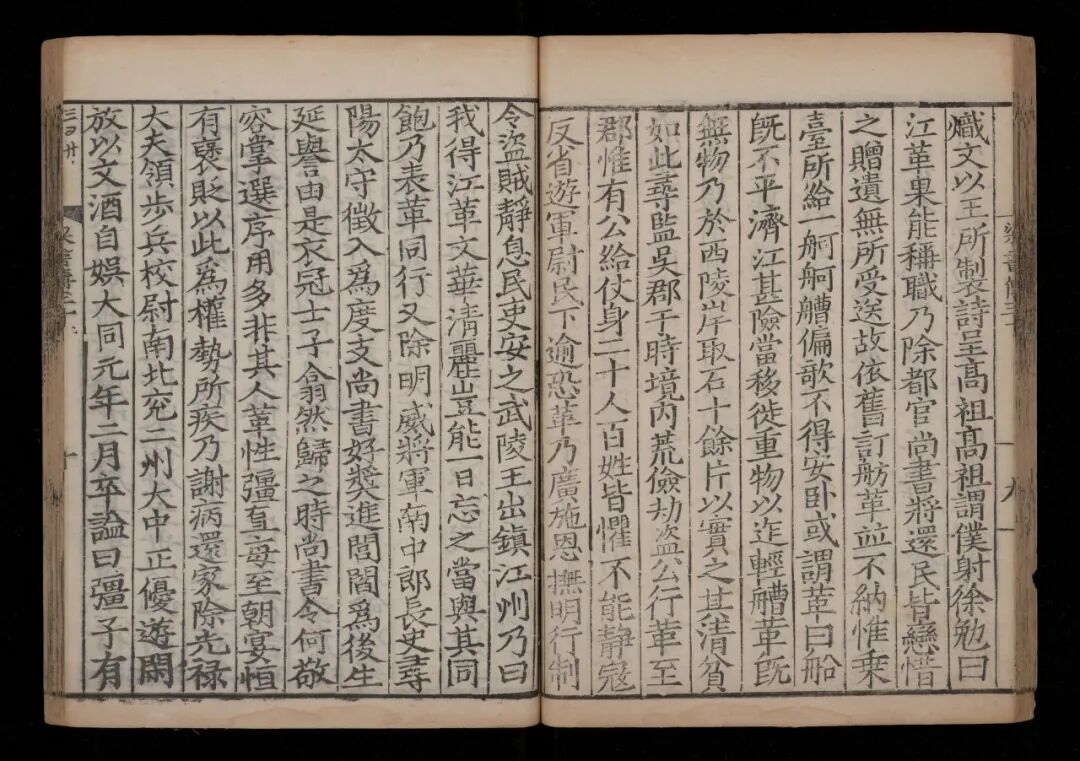 熾文以王所製詩呈高祖高祖謂僕射徐勉曰
江革果能稱職乃除都官尚書將還民皆戀惜
之贈遺無所受送故依舊訂舫革並不納惟乗
臺所給一舸舸艚偏欹不得安卧或謂革曰船
旣不平濟江甚險當移徙重物以迮輕艚革旣
無物乃於西陵岸取石十餘片以實之其清貧
如此尋監吳郡于時境内荒儉劫盗公行革至
郡惟有公給仗身二十人百姓皆懼不能靜寇
反省遊軍尉民下逾恐革乃廣施恩撫明行制
令盗賊靜息民吏安之武陵王出鎮江州乃曰
我得江革文華清麗豈能一日忘之當與其同
飽乃表革同行又除明威將軍南中郎長史尋
陽太守徴入爲度支尚書好奬進閭閻爲後生
延譽由是衣冠士子翕然歸之時尚書令何敬
容掌選序用多非其人革性彊直每至朝宴恒
有襃貶以此爲權勢所疾乃謝病還家除光禄
大夫領步兵校尉南北兖二州大中正優遊閑
放以文酒自娯大同元年二月卒謚曰彊子有